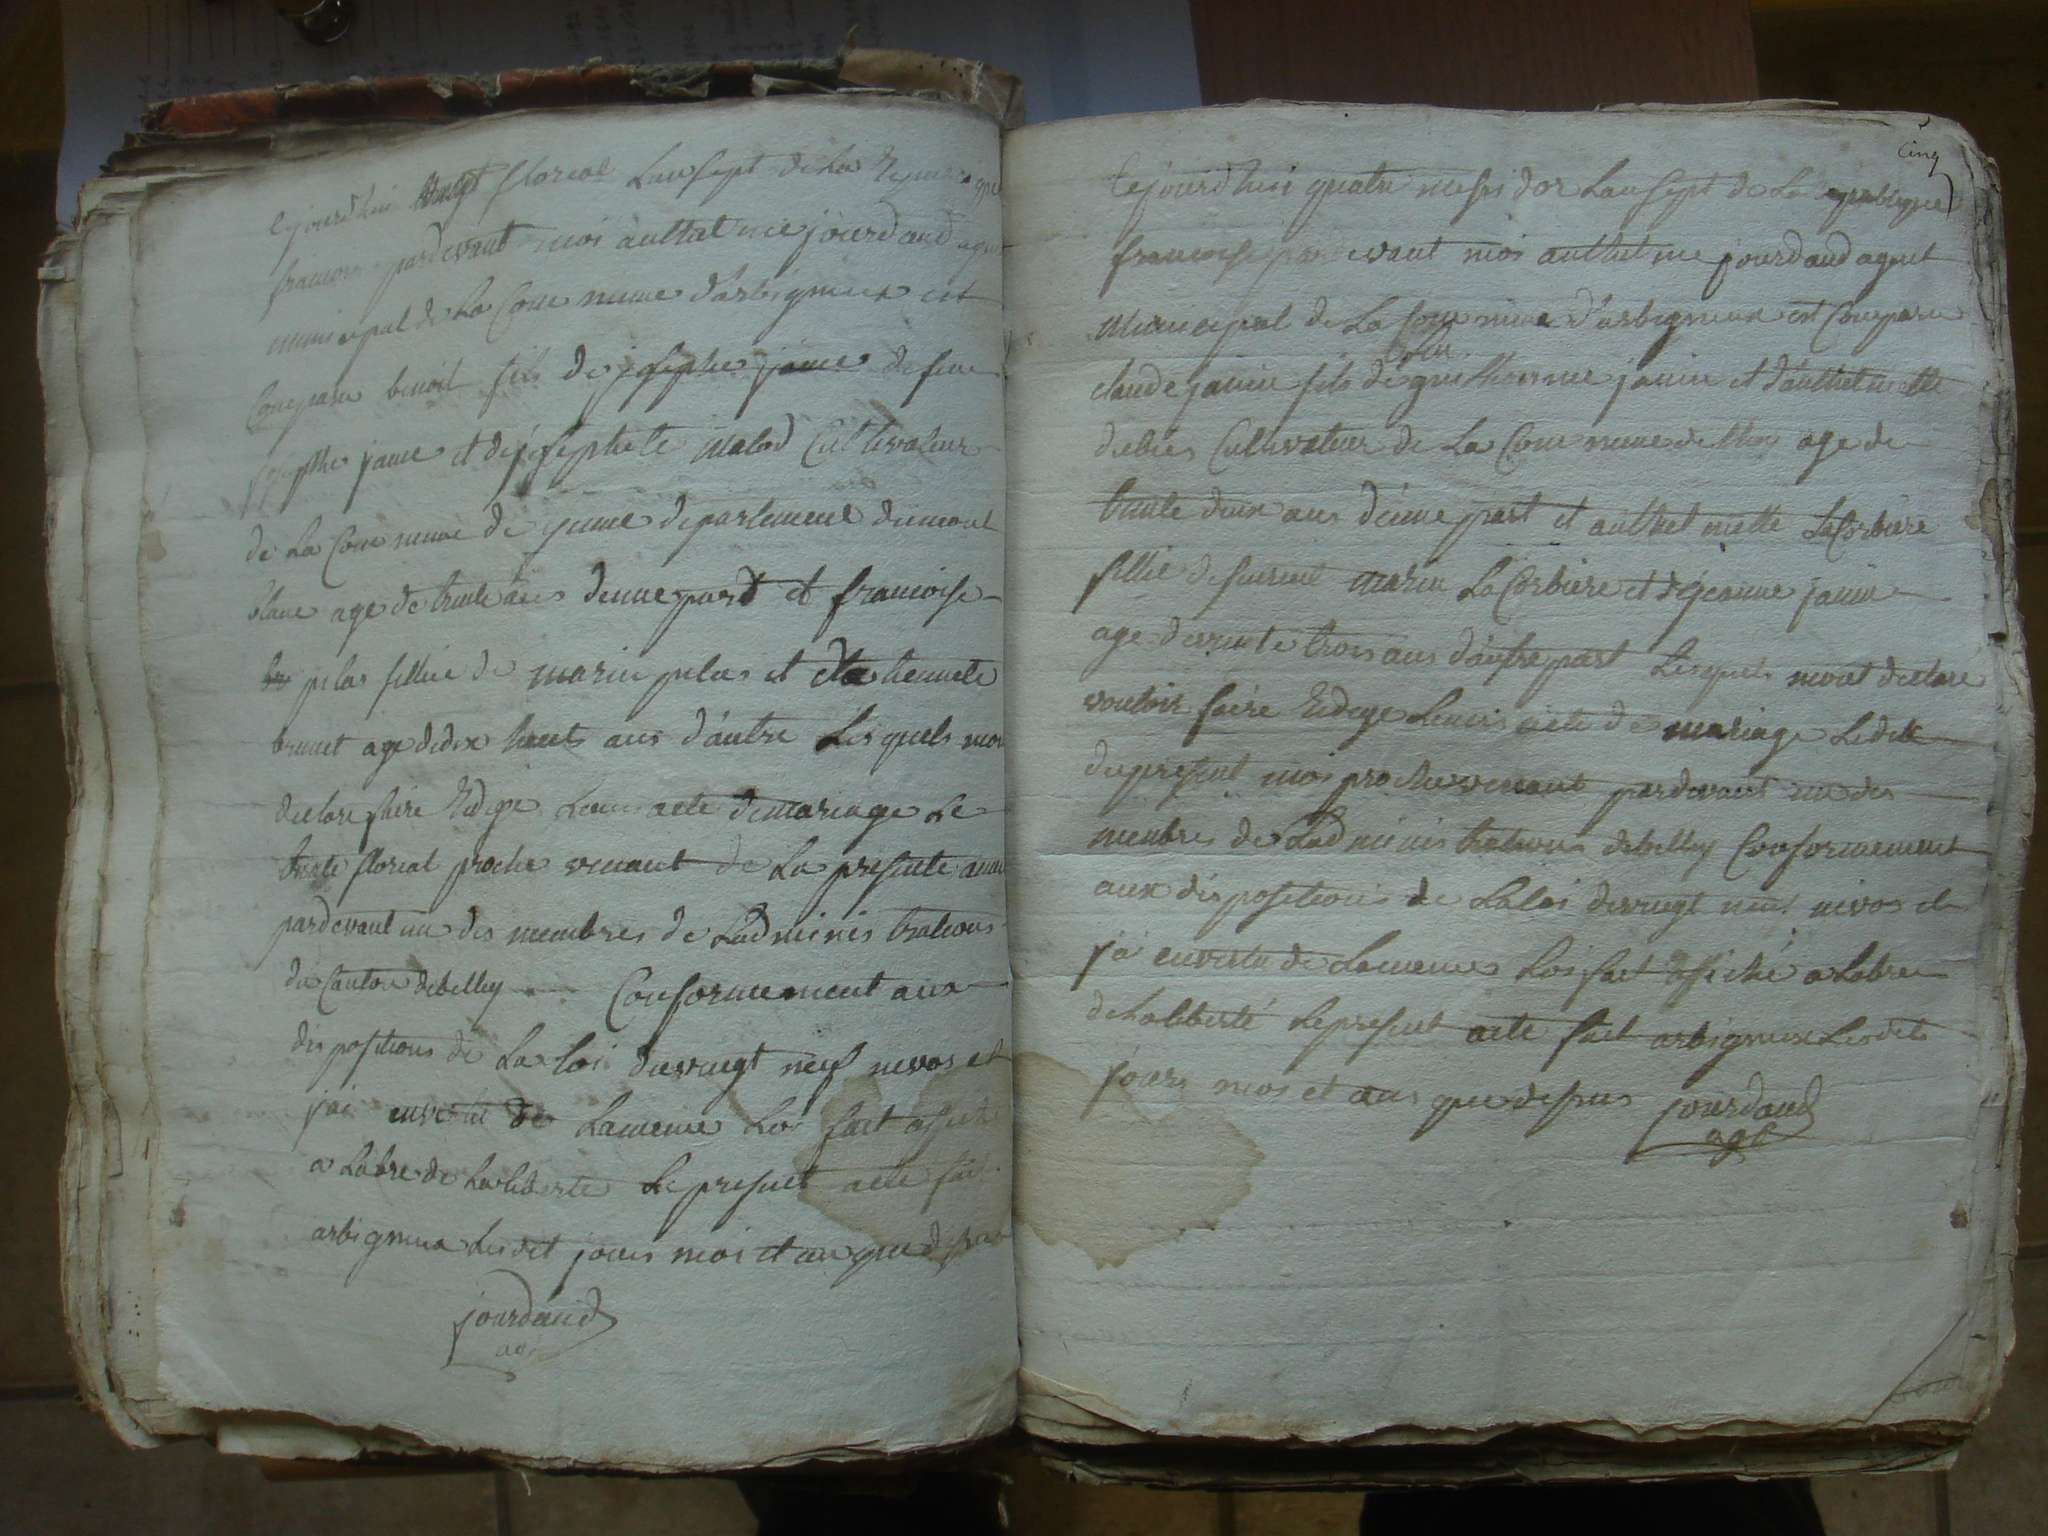 Cejourdhui vingt floreal Lan sept de La Republique
francoise pardevant moi anthelme jourdand agent
municipal de La Commune d'arbignieu est
Comparu benoit fils de josephe jame de feu
josephe jame et de josephete malod Cultivateur
de La Commune de yenne departement du mont
blanc age de trente ans d'enne part et francoise
pelas fillie de marin pelas et etiennete
brunet age de dix huit ans d'autre Lesquels mon
declare faire Redige Leurs acte de mariage Le
trente floreal proche venant de La presente année
pardevant un des membres de Ladministrations
du Canton debelley Conformement aux
dispositions de La loi du vingt neuf nivos et
jai envertu de Lameme Loi fait afiché
a Labre de La liberte Le present acte fait
arbignieu Lesdit jours mois et an que dessus
jourdand
ag
5
Cinq
Cejourdhui quatre messidor Lan sept de La Republique
francoise pardevant moi anthelme jourdand agent
Municipal de La Commune d'arbignieu est Comparu
feu
claude janin fils de guilliomme janin et d'anthelmette
Cultivateur de La Commune de age de
trente deux ans d'enne part et anthelmette La Corbiere
fillie de marin La Corbiere et de jeanne janin
age de vinte trois ans d'autre part Lesquels mont declaré
vouloir faire Redige Leurs acte de mariage Ledix
du present mois prochevenant pardevant un des
membres de Ladministrations debelley Conformement
aux dispositions de La loi du vingt neuf nivos et
j'ai envertu de Lameme Loi fait afiché a Labre
de La liberté Le present acte fait arbignieu Lesdits
jours mois et ans que dessus jourdand
age